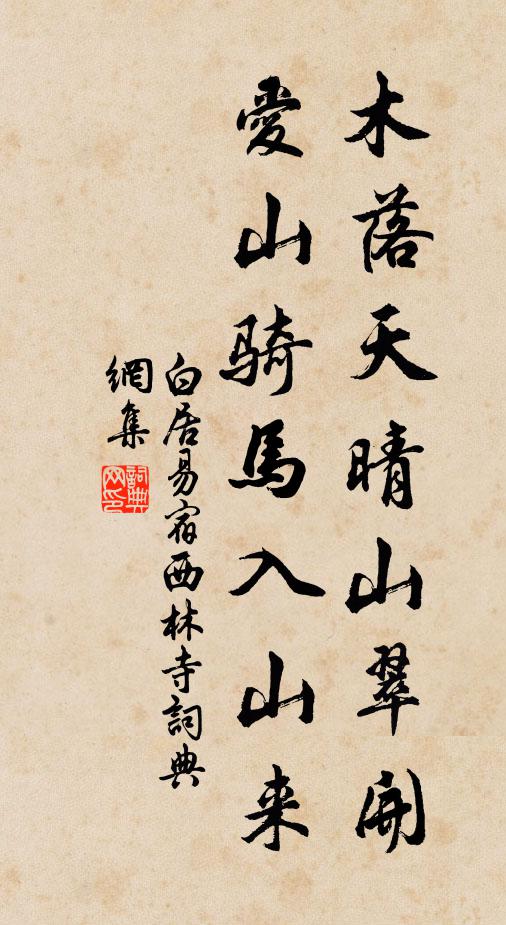 木落天晴山翠開
愛山騎馬入山来
白居易宿西林寺詞典
網集
詞典网印